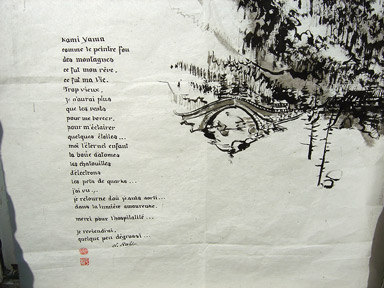 Kami Yama
comme le peintre fou
des montagnes
ce fut mon rêve,
ce fut ma vie.
Trop vieux,
je n'aurai plus
que les mots
pour me bercer,
pour m'éclairer
quelques étoiles...
moi l'éternel enfant
la boue d'atomes
les chatouilles
d'électrons
les pets de quarks...
j'ai vu...
je retourne d'où je suis sorti...
dans la lumière amoureuse.
merci pour l'hospitalité...
je reviendrai,
quelque peu dégrossi...